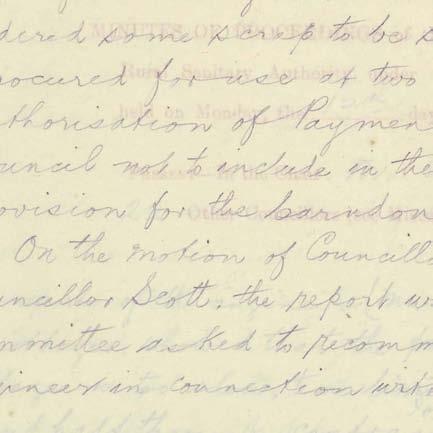 dered some scrap to be s
rocured for use at two
thorisation of Paymen
uncil not to include in the
ovision for the
On the motion of Councillo
uncillor Scott, the report w
mmittee asked to recomm
gineer in connection with
MINUTES OF PROCEEDINGS of
Rural Sanitary Authority, under
held on Monday the day